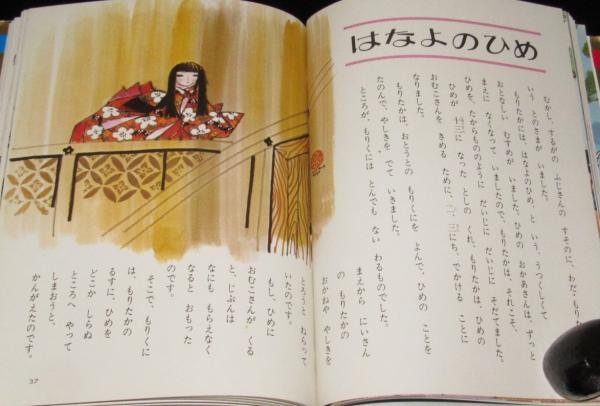 はなよのひめ
むかし、するがの ふじさんの すそのに、わだ・もりたか
いう とのさまが いました。
もりたかには、はなよのひめ、と いう、うつくしくて
おとなしい むすめが いました。ひめの おかあさんは、ずっと
まえに なくなって いましたので、もりたかは、それこそ、
ひめを、たからもののように だいじに だいじに そだてました。
ひめが 十三に なった としの くれ、もりたかは、ひめの
おむこさんを きめる ために、二、三にち、でかける ことに
なりました。
もりたかは、おとうとの もりくにを よんで、ひめの ことを
たのんで、やしきを でて いきました。
ところが、もりくには とんでも ない わるものでした。
まえから にいさん
の もりたかの
おかねや やしきを
とろうと ねらって
いたのです。
もし、ひめに
おむこさんが くる
と、じぶんは
なにも もらえなく
なると おもった
のです。
そこで、もりくに
は、もりたかの
るすに、ひめを
どこか しらぬ
ところへ やって
しまおうと、
かんがえたのです。
37